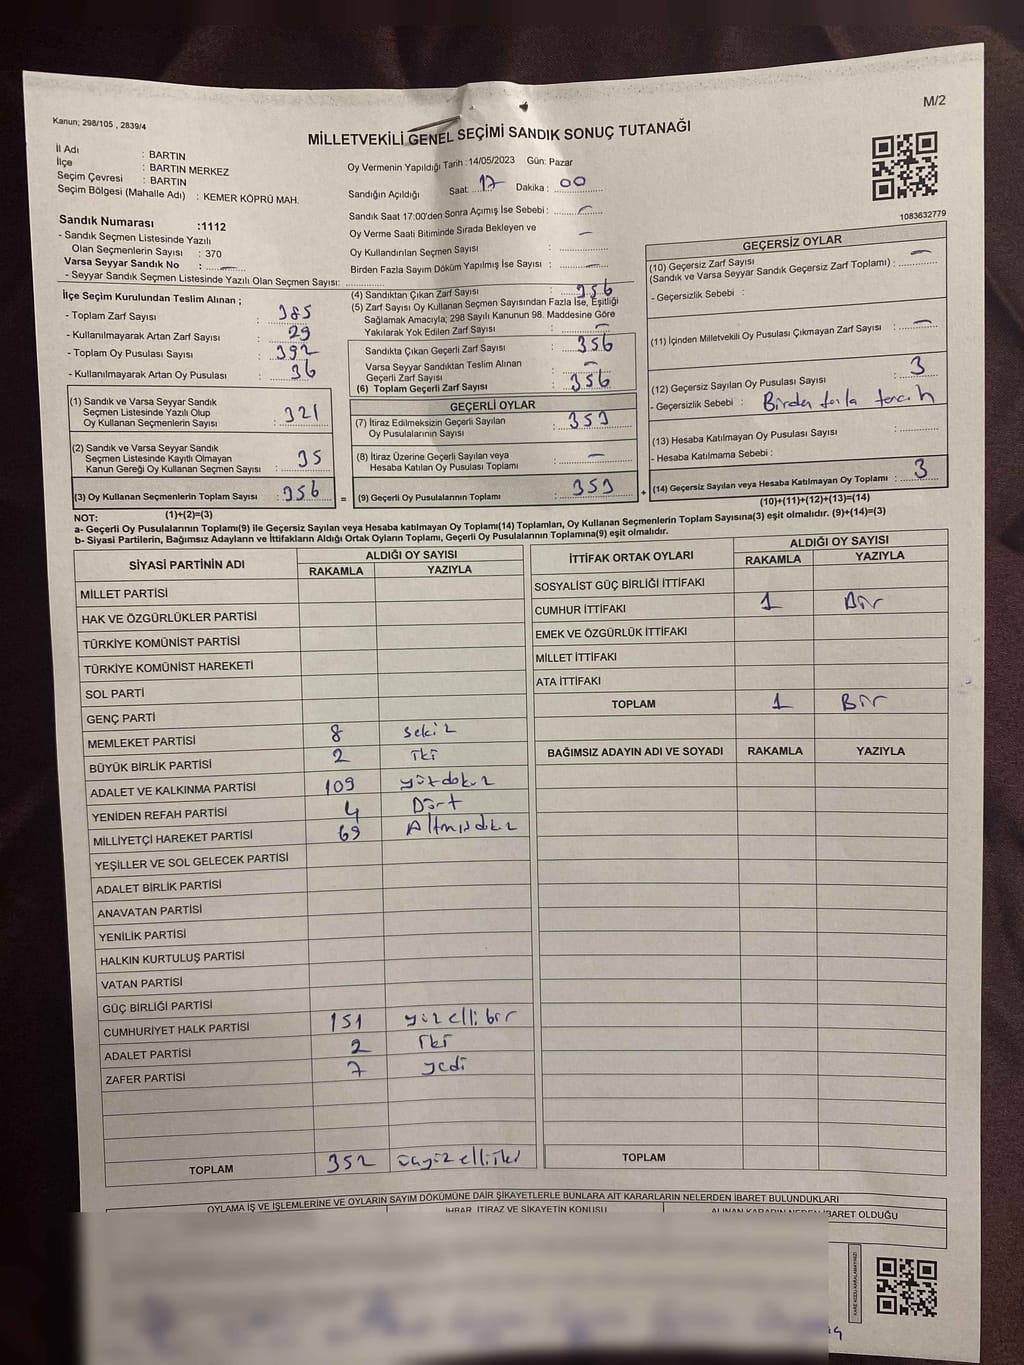 M/2
Kanun; 298/105 , 2839/4
MİLLETVEKİLİ GENEL SEÇİMİ SANDIK SONUÇ TUTANAĞI
İl Adı : BARTIN
İlçe : BARTIN MERKEZ
Seçim Çevresi : BARTIN
Seçim Bölgesi (Mahalle Adı) : KEMER KÖPRÜ MAH.
Sandık Numarası :1112
- Sandık Seçmen Listesinde Yazılı
Olan Seçmenlerin Sayısı : 370
Varsa Seyyar Sandık No : —
- Seyyar Sandık Seçmen Listesinde Yazılı Olan Seçmen Sayısı:
Oy Vermenin Yapıldığı Tarih :14/05/2023 Gün: Pazar
Sandığın Açıldığı Saat 17 Dakika : 00
Sandık Saat 17:00'den Sonra Açımış İse Sebebi : —
Oy Verme Saati Bitiminde Sırada Bekleyen ve —
Oy Kullandırılan Seçmen Sayısı :
Birden Fazla Sayım Döküm Yapılmış İse Sayısı : —
1083632779
İlçe Seçim Kurulundan Teslim Alınan ;
- Toplam Zarf Sayısı : 385
- Kullanılmayarak Artan Zarf Sayısı : 29
- Toplam Oy Pusulası Sayısı : 392
- Kullanılmayarak Artan Oy Pusulası : 36
(1) Sandık ve Varsa Seyyar Sandık
Seçmen Listesinde Yazılı Olup
Oy Kullanan Seçmenlerin Sayısı : 321
(2) Sandık ve Varsa Seyyar Sandık
Seçmen Listesinde Kayıtlı Olmayan
Kanun Gereği Oy Kullanan Seçmen Sayısı : 35
(3) Oy Kullanan Seçmenlerin Toplam Sayısı : 356
(1)+(2)=(3)
(4) Sandıktan Çıkan Zarf Sayısı : 356
(5) Zarf Sayısı Oy Kullanan Seçmen Sayısından Fazla İse, Eşitliği
Sağlamak Amacıyla; 298 Sayılı Kanunun 98. Maddesine Göre
Yakılarak Yok Edilen Zarf Sayısı : —
Sandıkta Çıkan Geçerli Zarf Sayısı : 356
Varsa Seyyar Sandıktan Teslim Alınan
Geçerli Zarf Sayısı : —
(6) Toplam Geçerli Zarf Sayısı : 356
GEÇERLİ OYLAR
(7) İtiraz Edilmeksizin Geçerli Sayılan
Oy Pusulalarının Sayısı : 353
(8) İtiraz Üzerine Geçerli Sayılan veya
Hesaba Katılan Oy Pusulası Toplamı : —
= (9) Geçerli Oy Pusulalarının Toplamı : 353
GEÇERSİZ OYLAR
(10) Geçersiz Zarf Sayısı
(Sandık ve Varsa Seyyar Sandık Geçersiz Zarf Toplamı) : —
- Geçersizlik Sebebi :
(11) İçinden Milletvekili Oy Pusulası Çıkmayan Zarf Sayısı : —
(12) Geçersiz Sayılan Oy Pusulası Sayısı : 3
- Geçersizlik Sebebi : Birden fazla tercih
(13) Hesaba Katılmayan Oy Pusulası Sayısı :
- Hesaba Katılmama Sebebi :
+ (14) Geçersiz Sayılan veya Hesaba Katılmayan Oy Toplamı : 3
(10)+(11)+(12)+(13)=(14)
NOT:
a- Geçerli Oy Pusulalarının Toplamı(9) ile Geçersiz Sayılan veya Hesaba katılmayan Oy Toplamı(14) Toplamları, Oy Kullanan Seçmenlerin Toplam Sayısına(3) eşit olmalıdır. (9)+(14)=(3)
b- Siyasi Partilerin, Bağımsız Adayların ve İttifakların Aldığı Ortak Oyların Toplamı, Geçerli Oy Pusulalarının Toplamına(9) eşit olmalıdır.
SİYASİ PARTİNİN ADI ALDIĞI OY SAYISI
RAKAMLA YAZIYLA
MİLLET PARTİSİ
HAK VE ÖZGÜRLÜKLER PARTİSİ
TÜRKİYE KOMÜNİST PARTİSİ
TÜRKİYE KOMÜNİST HAREKETİ
SOL PARTİ
GENÇ PARTİ
MEMLEKET PARTİSİ 8 sekiz
BÜYÜK BİRLİK PARTİSİ 2 iki
ADALET VE KALKINMA PARTİSİ 109 yüzdokuz
YENİDEN REFAH PARTİSİ 4 Dört
MİLLİYETÇİ HAREKET PARTİSİ 69 Altmışdokuz
YEŞİLLER VE SOL GELECEK PARTİSİ
ADALET BİRLİK PARTİSİ
ANAVATAN PARTİSİ
YENİLİK PARTİSİ
HALKIN KURTULUŞ PARTİSİ
VATAN PARTİSİ
GÜÇ BİRLİĞİ PARTİSİ
CUMHURİYET HALK PARTİSİ 151 yüzellibir
ADALET PARTİSİ 2 iki
ZAFER PARTİSİ 7 yedi
TOPLAM 352 üçyüzelliiki
İTTİFAK ORTAK OYLARI ALDIĞI OY SAYISI
RAKAMLA YAZIYLA
SOSYALİST GÜÇ BİRLİĞİ İTTİFAKI
CUMHUR İTTİFAKI 1 Bir
EMEK VE ÖZGÜRLÜK İTTİFAKI
MİLLET İTTİFAKI
ATA İTTİFAKI
TOPLAM 1 Bir
BAĞIMSIZ ADAYIN ADI VE SOYADI RAKAMLA YAZIYLA
TOPLAM
OYLAMA İŞ VE İŞLEMLERİNE VE OYLARIN SAYIM DÖKÜMÜNE DAİR ŞİKAYETLERLE BUNLARA AİT KARARLARIN NELERDEN İBARET BULUNDUKLARI
İHBAR, İTİRAZ VE ŞİKAYETİN KONUSU
ALINAN KARARIN NEDEN İBARET OLDUĞU